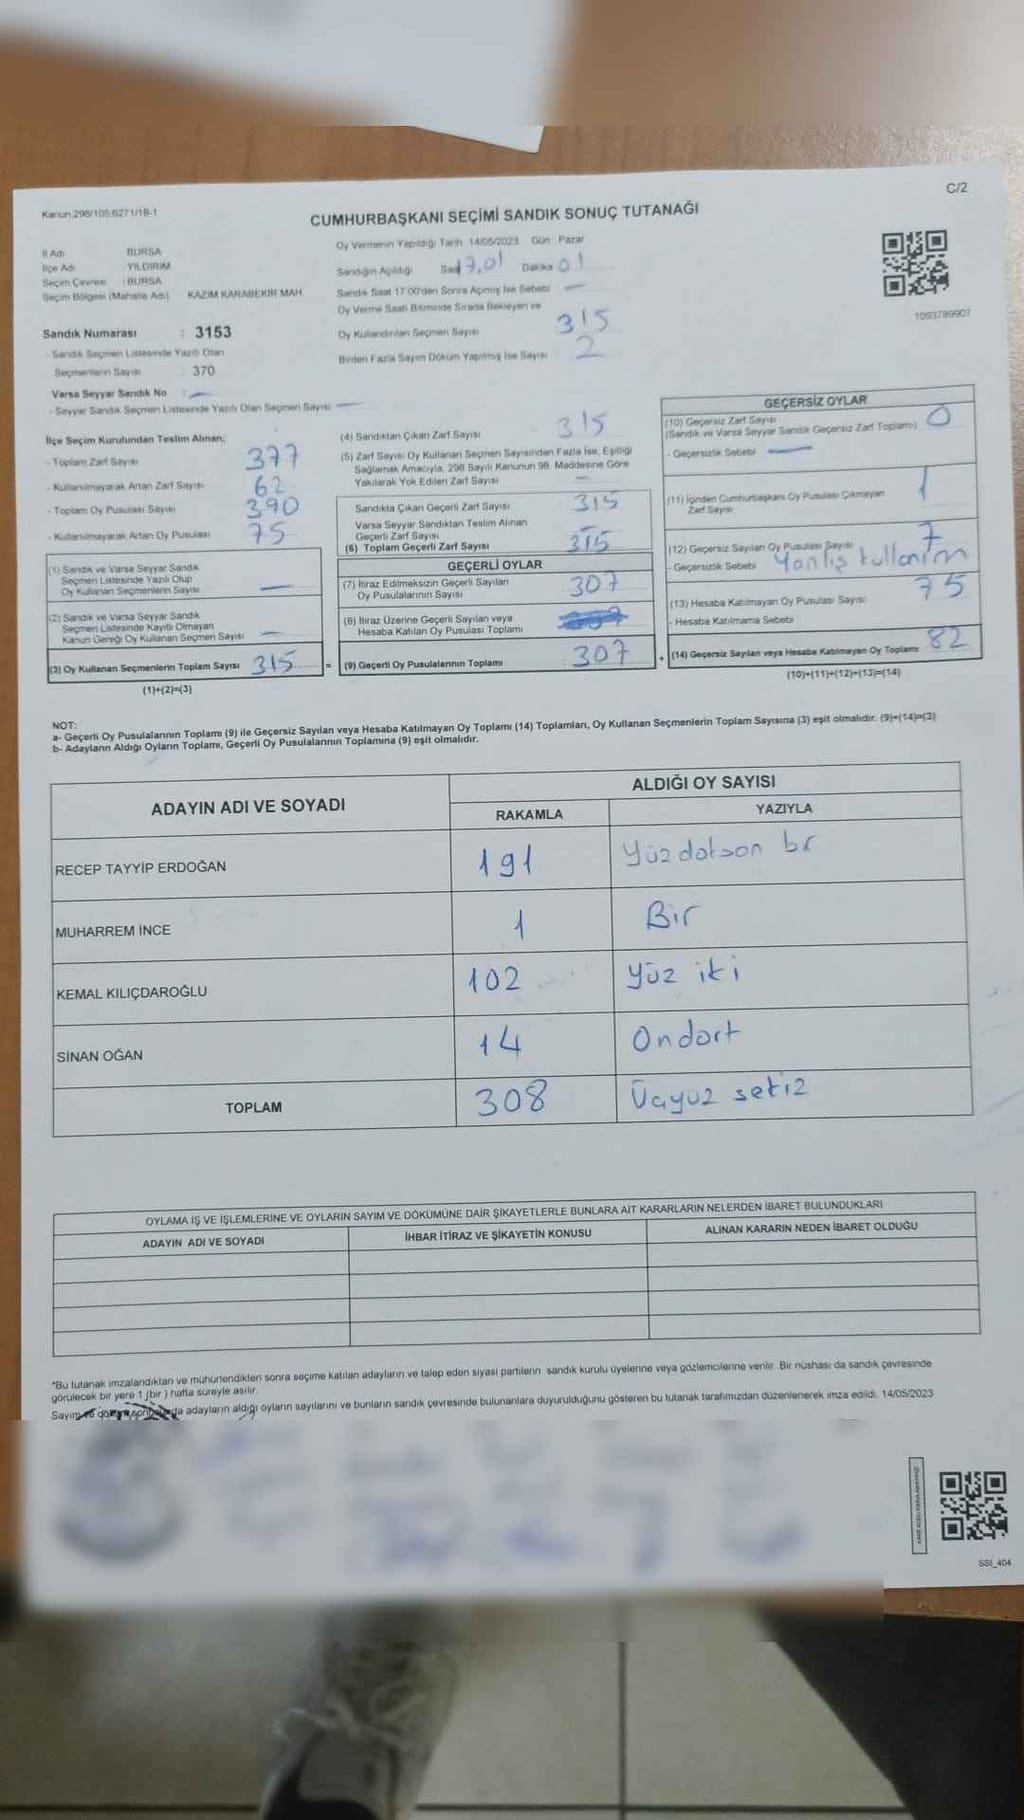 C/2
Kanun:298/105.6271/18-1
CUMHURBAŞKANI SEÇİMİ SANDIK SONUÇ TUTANAĞI
İl Adı BURSA
İlçe Adı YILDIRIM
Seçim Çevresi : BURSA
Seçim Bölgesi (Mahalle Adı) KAZIM KARABEKİR MAH
Sandık Numarası : 3153
- Sandık Seçmen Listesinde Yazılı Olan
Seçmenlerin Sayısı : 370
Varsa Seyyar Sandık No : —
- Seyyar Sandık Seçmen Listesinde Yazılı Olan Seçmen Sayısı —
Oy Vermenin Yapıldığı Tarih 14/05/2023 Gün : Pazar
Sandığın Açıldığı Saat 17.01 Dakika 01
Sandık Saat 17:00'den Sonra Açılmış İse Sebebi —
Oy Verme Saati Bitiminde Sırada Bekleyen ve
Oy Kullandırılan Seçmen Sayısı 315
Birden Fazla Sayım Döküm Yapılmış İse Sayısı 2
1093789907
İlçe Seçim Kurulundan Teslim Alınan;
- Toplam Zarf Sayısı 377
- Kullanılmayarak Artan Zarf Sayısı 62
- Toplam Oy Pusulası Sayısı 390
- Kullanılmayarak Artan Oy Pusulası 75
(1) Sandık ve Varsa Seyyar Sandık
Seçmen Listesinde Yazılı Olup
Oy Kullanan Seçmenlerin Sayısı —
(2) Sandık ve Varsa Seyyar Sandık
Seçmen Listesinde Kayıtlı Olmayan
Kanun Gereği Oy Kullanan Seçmen Sayısı —
(3) Oy Kullanan Seçmenlerin Toplam Sayısı 315 =
(1)+(2)=(3)
(4) Sandıktan Çıkan Zarf Sayısı 315
(5) Zarf Sayısı Oy Kullanan Seçmen Sayısından Fazla İse, Eşitliği
Sağlamak Amacıyla, 298 Sayılı Kanunun 98. Maddesine Göre
Yakılarak Yok Edilen Zarf Sayısı —
Sandıkta Çıkan Geçerli Zarf Sayısı 315
Varsa Seyyar Sandıktan Teslim Alınan
Geçerli Zarf Sayısı
(6) Toplam Geçerli Zarf Sayısı 315
GEÇERLİ OYLAR
(7) İtiraz Edilmeksizin Geçerli Sayılan
Oy Pusulalarının Sayısı 307
(8) İtiraz Üzerine Geçerli Sayılan veya
Hesaba Katılan Oy Pusulası Toplamı
(9) Geçerli Oy Pusulalarının Toplamı 307 +
GEÇERSİZ OYLAR
(10) Geçersiz Zarf Sayısı
(Sandık ve Varsa Seyyar Sandık Geçersiz Zarf Toplamı) 0
- Geçersizlik Sebebi —
(11) İçinden Cumhurbaşkanı Oy Pusulası Çıkmayan
Zarf Sayısı 1
(12) Geçersiz Sayılan Oy Pusulası Sayısı 7
- Geçersizlik Sebebi Yanlış kullanım
(13) Hesaba Katılmayan Oy Pusulası Sayısı 75
- Hesaba Katılmama Sebebi
(14) Geçersiz Sayılan veya Hesaba Katılmayan Oy Toplamı 82
(10)+(11)+(12)+(13)=(14)
NOT:
a- Geçerli Oy Pusulalarının Toplamı (9) ile Geçersiz Sayılan veya Hesaba Katılmayan Oy Toplamı (14) Toplamları, Oy Kullanan Seçmenlerin Toplam Sayısına (3) eşit olmalıdır. (9)+(14)=(3)
b- Adayların Aldığı Oyların Toplamı, Geçerli Oy Pusulalarının Toplamına (9) eşit olmalıdır.
ADAYIN ADI VE SOYADI
ALDIĞI OY SAYISI
RAKAMLA YAZIYLA
RECEP TAYYİP ERDOĞAN 191 Yüzdoksan bir
MUHARREM İNCE 1 Bir
KEMAL KILIÇDAROĞLU 102 Yüz iki
SİNAN OĞAN 14 Ondört
TOPLAM 308 Üçyüz sekiz
OYLAMA İŞ VE İŞLEMLERİNE VE OYLARIN SAYIM VE DÖKÜMÜNE DAİR ŞİKAYETLERLE BUNLARA AİT KARARLARIN NELERDEN İBARET BULUNDUKLARI
ADAYIN ADI VE SOYADI İHBAR İTİRAZ VE ŞİKAYETİN KONUSU ALINAN KARARIN NEDEN İBARET OLDUĞU
*Bu tutanak imzalandıktan ve mühürlendikten sonra seçime katılan adayların ve talep eden siyasi partilerin sandık kurulu üyelerine veya gözlemcilerine verilir. Bir nüshası da sandık çevresinde
görülecek bir yere 1 (bir) hafta süreyle asılır.
Sayım ve döküm sonucunda adayların aldığı oyların sayılarını ve bunların sandık çevresinde bulunanlara duyurulduğunu gösteren bu tutanak tarafımızdan düzenlenerek imza edildi. 14/05/2023
SSI_404